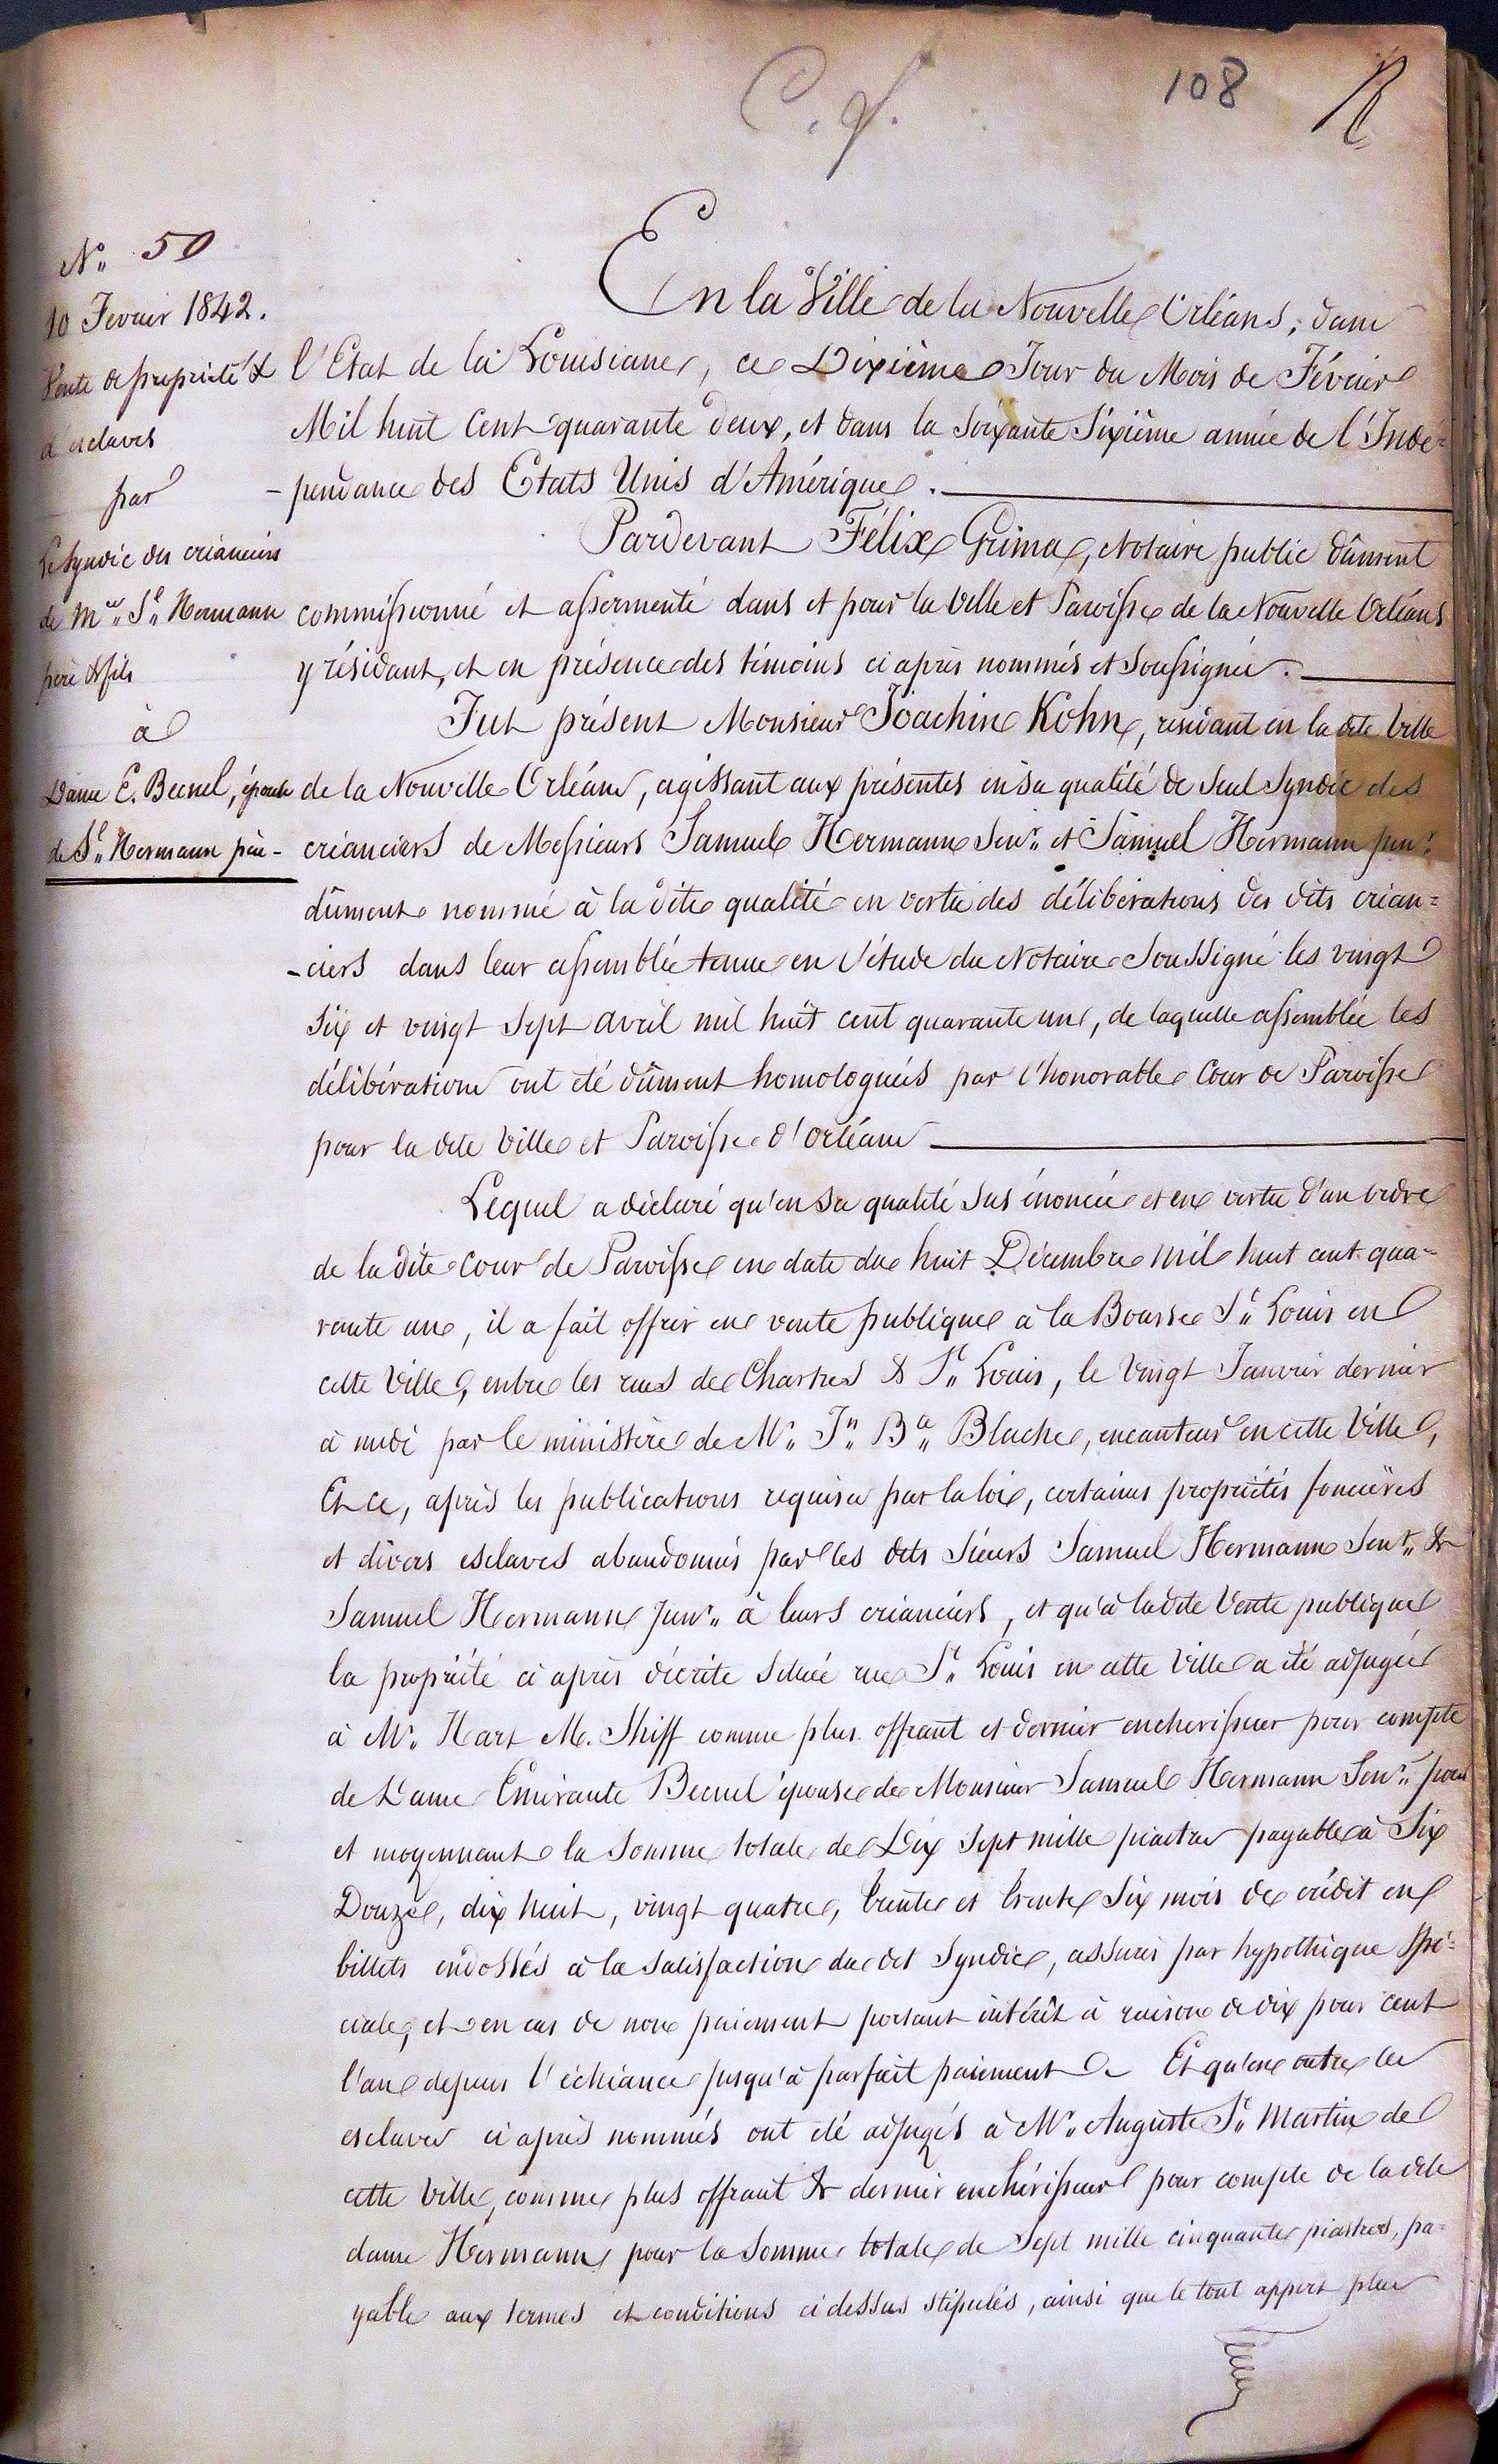 C. f.
108
N° 50
10 Fevrier 1842.
Vente de propriété &
d'esclaves
par
Le Syndic des créanciers
de Mrs. Sl. Hermann
père & fils
à
Dame E. Becnel, épouse
de Sl. Hermann père -
En la Ville de la Nouvelle Orléans, dans
l'Etat de la Louisiane, ce Dixième Jour du Mois de Février
Mil huit Cent quarante deux, et dans la Soixante Sixième année de l'Indé-
-pendance des Etats Unis d'Amérique.
Pardevant Félix Grima, Notaire public dûment
commissionné et assermenté dans et pour la Ville et Paroisse de la Nouvelle Orléans
y résidant, et en présence des témoins ci après nommés et Soussignés.
Fut présent Monsieur Joachin Kohn, residant en la dite Ville
de la Nouvelle Orléans, agissant aux présentes en sa qualité de Seul Syndic des
créanciers de Messieurs Samuel Hermann Senr. et Samuel Hermann junr.
dûment nommé à la dite qualité en vertu des délibérations des dits créan=
-ciers dans leur assemblée tenue en l'étude du Notaire Soussigné les vingt
Six et vingt Sept avril mil huit cent quarante un, de laquelle assemblée les
délibérations ont été dûment homologuées par l'honorable Cour de Paroisse
pour la dite Ville et Paroisse d'Orléans
Lequel a déclaré qu'en Sa qualité Sus énoncée et en vertu d'un ordre
de la dite Cour de Paroisse en date du huit Décembre mil huit cent qua-
rante un, il a fait offrir en vente publique à la Bourse St. Louis en
cette Ville, entre les rues de Chartres & St. Louis, le Vingt Janvier dernier
à midi par le ministère de Mr. Jn. Bte. Blache, encanteur en cette Ville,
Et ce, après les publications requises par la loi, certaines propriétés foncières
et divers esclaves abandonnés par les dits Sieurs Samuel Hermann Senr. &
Samuel Hermann Junr. à leurs créanciers, et qu'à la dite Vente publique
la propriété ci après décrite Située rue St. Louis en cette Ville a été adjugée
à Mr. Hart M. Shiff comme plus offrant et dernier enchérisseur pour compte
de Dame Emérante Becnel épouse de Monsieur Samuel Hermann Senr. pour
et moyennant la Somme totale de Dix Sept mille piastres payable à Six
Douze, dix huit, vingt quatre, trente et trente Six mois de crédit en
billets endossés à la Satisfaction du dit Syndic, assurés par hypothèque Spé=
ciale, et en cas de non paiement portant intérêt à raison de dix pour cent
l'an depuis l'échéance jusqu'à parfait paiement. Et qu'en outre les
esclaves ci après nommés ont été adjugés à Mr. Auguste St. Martin de
cette Ville, comme plus offrant & dernier enchérisseur pour compte de la dite
dame Hermann, pour la Somme totale de Sept mille cinquante piastres, pa=
yable aux termes et conditions ci dessus stipulés, ainsi que le tout appert plus